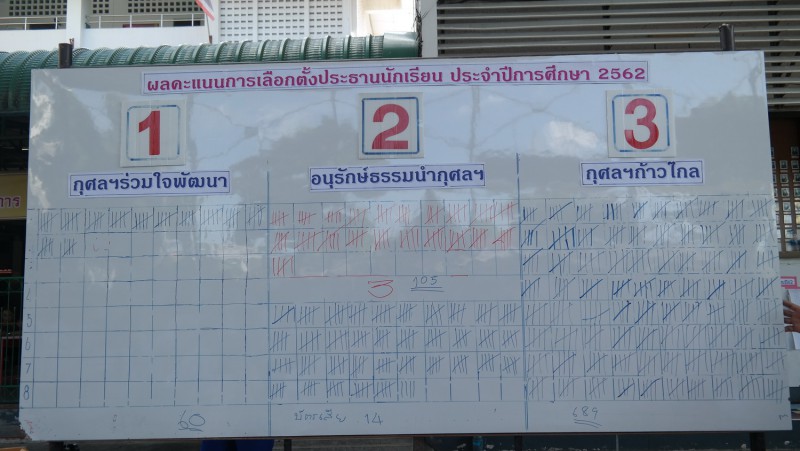 ผลคะแนนการเลือกตั้งประธานนักเรียน ประจำปีการศึกษา 2562
1 2 3
กุศลฯร่วมใจพัฒนา อนุรักษ์ธรรมนำกุศลฯ กุศลฯก้าวไกล
3 105
5
6
7
8
60 บัตรเสีย 14 689